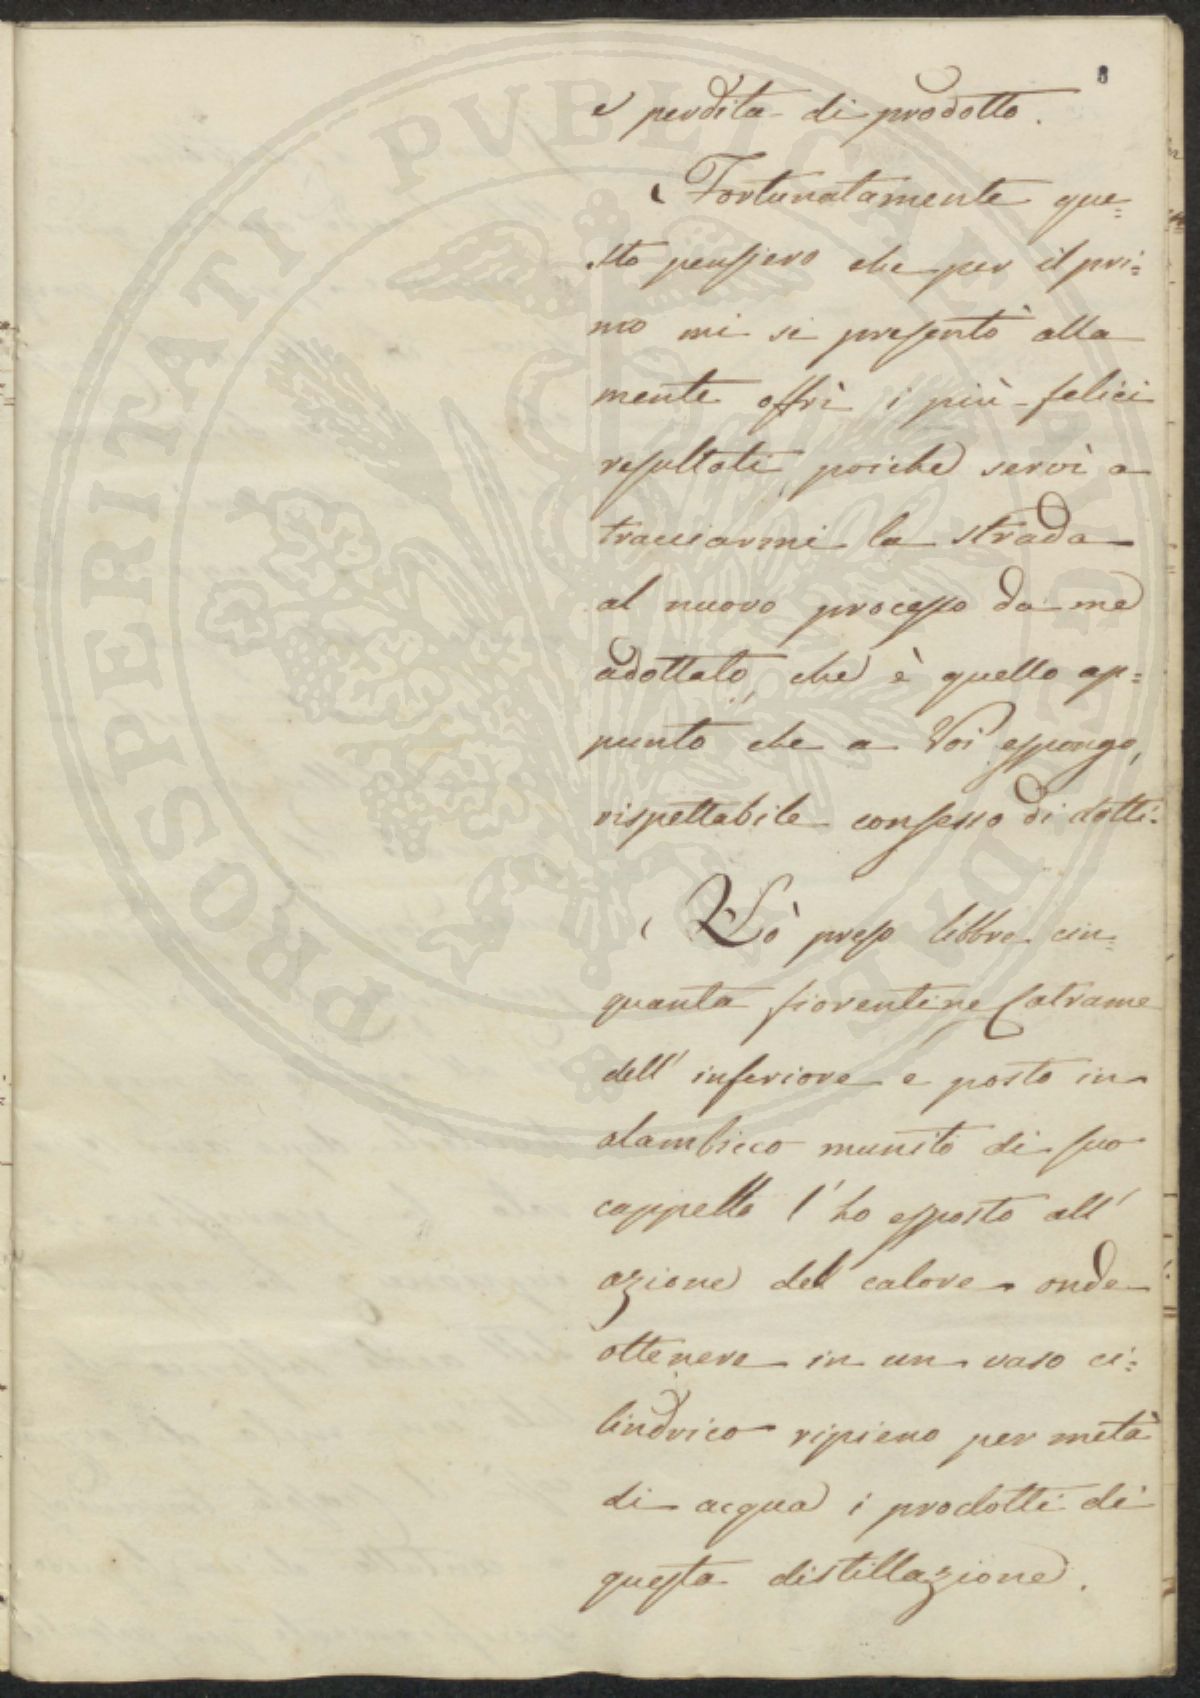 8
e perdita di prodotto.
Fortunatamente que=
sto pensiero che per il pri=
mo mi si presentò alla
mente offrì i più felici
resultati, poichè servì a
tracciarmi la strada
al nuovo processo da me
adottato, che è quello ap=
punto che a Voi espongo,
rispettabile consesso di dotti.
Hò preso libbre cin=
quanta fiorentine Catrame
dell' inferiore e posto in
alambicco munito di suo
cappello l' ho esposto all'
azione del calore onde
ottenere in un vaso ci=
lindrico ripieno per metà
di acqua i prodotti di
questa distillazione.
PROSPERITATI PUBLICAE AUGENDAE